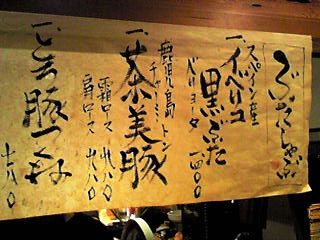 ぶたしゃぶ
スペイン産
一、イベリコ
黒ぶた
ベリョータ
一四〇〇
鹿児島
チャーミートン
一、茶美豚
霜ロース 九八〇
肩ロース 九八〇